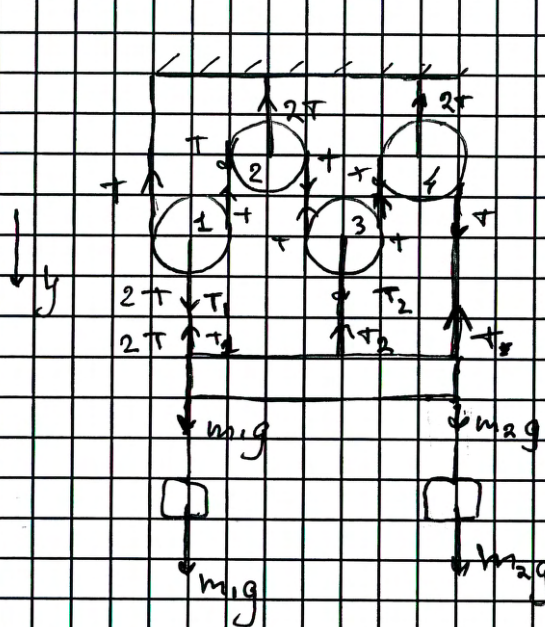 2T 2T
T 2 T T 4
T 1 T T 3 T T
y
2T T₁ T₂
2T T₂
m₁g m₂g
m₁g m₂g